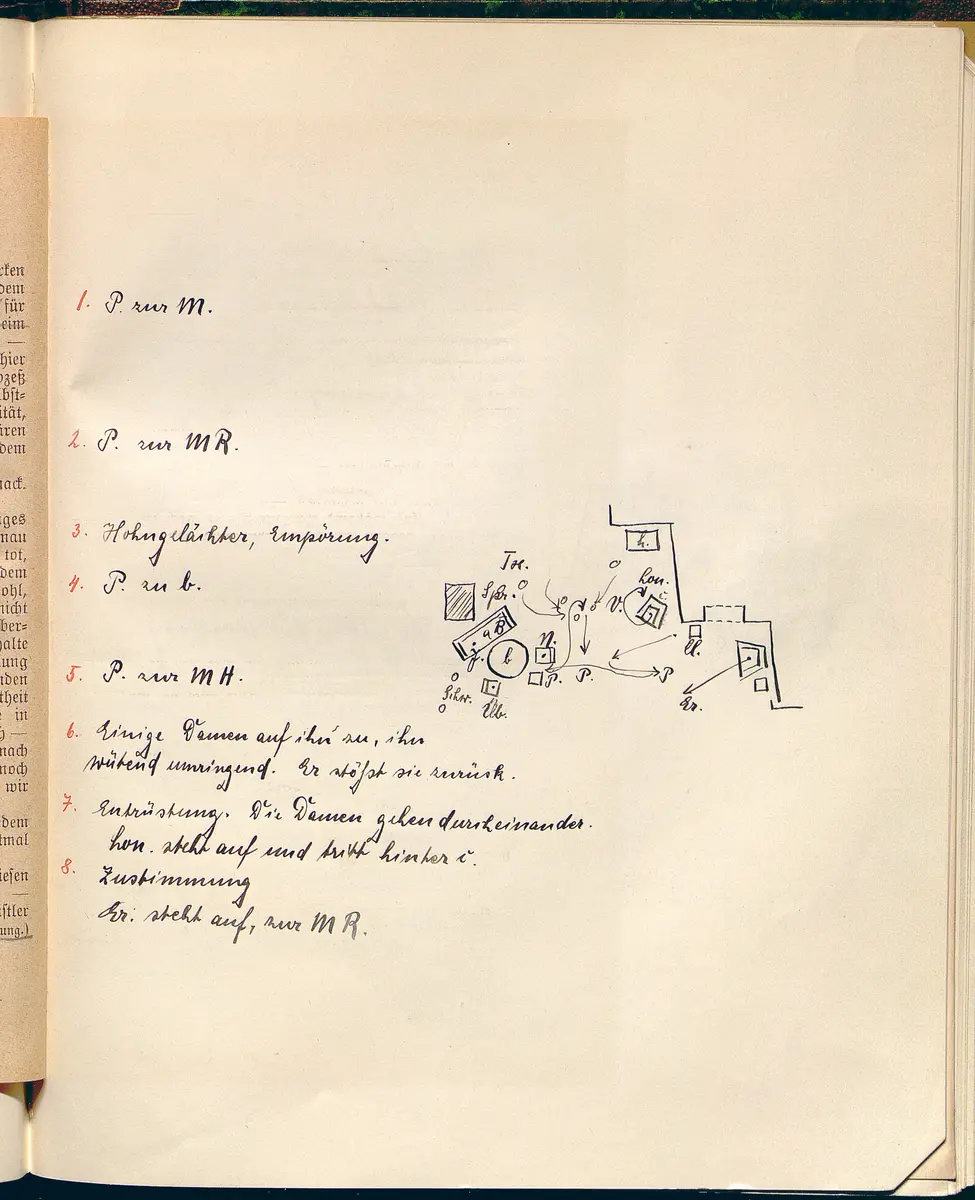 cken
dem
für
eim
—
hier
ozeß
lbst=
ität,
ären
dem
nack.
ges
nau
tot,
dem
ohl,
nicht
ber=
halte
ung
nden
theit
e in
—
nach
noch
wir
dem
tmal
iesen
—
stler
ung.)
1. P. zur M.
2. P. zur MR.
3. Hohngelächter, Empörung.
4. P. zu b.
5. P. zur MH.
6. Einige Damen auf ihn zu, ihn
wütend umringend. Er stößt sie zurück.
7. Entrüstung. Die Damen gehen durcheinander.
Lon. steht auf und tritt hinter c.
8. Zustimmung
Er. steht auf, zur MR.
h.
Lon.
V.
c
Spr.
a B
j.
b
N.
P. P. P
Schw.
Er.